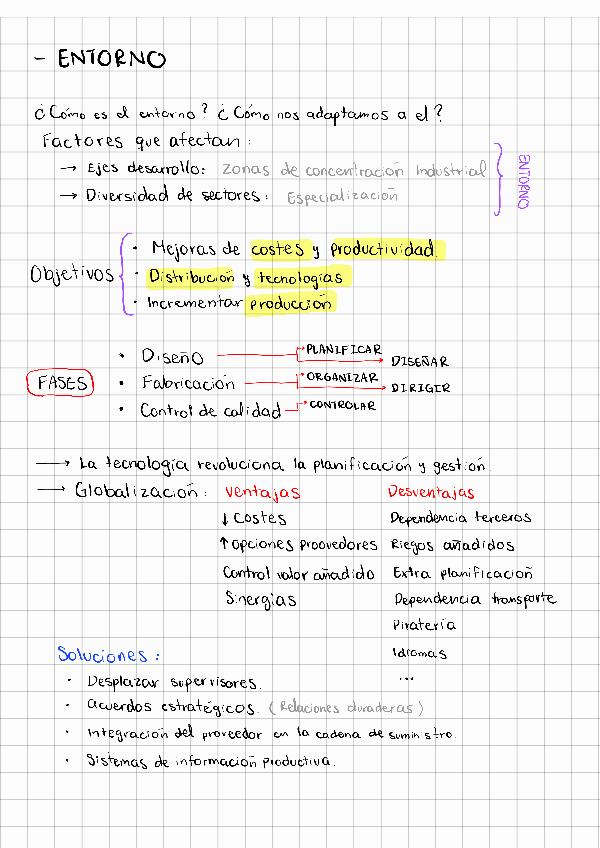 - ENTORNO
¿Cómo es el entorno? ¿Cómo nos adaptamos a el?
Factores que afectan:
→ Ejes desarrollo: zonas de concentración Industrial
→ Diversidad de sectores: Especialización
ENTORNO
Objetivos
· Mejoras de costes y productividad.
· Distribución y tecnologías
· Incrementar producción
FASES
· Diseño
PLANIFICAR
DISEÑAR
· Fabricación
ORGANIZAR
DIRIGIR
· Control de calidad
CONTROLAR
→ La tecnología revoluciona la planificación y gestión.
→ Globalización: Ventajas Desventajas
↓ Costes Dependencia terceros
↑ Opciones proovedores Riegos añadidos
Control valor añadido Extra planificación
Sinergias Dependencia transporte
Piratería
Idiomas
...
Soluciones:
· Desplazar supervisores.
· Acuerdos estratégicos. (Relaciones duraderas)
· Integración del proveedor en la cadena de suministro.
· Sistemas de información productiva.